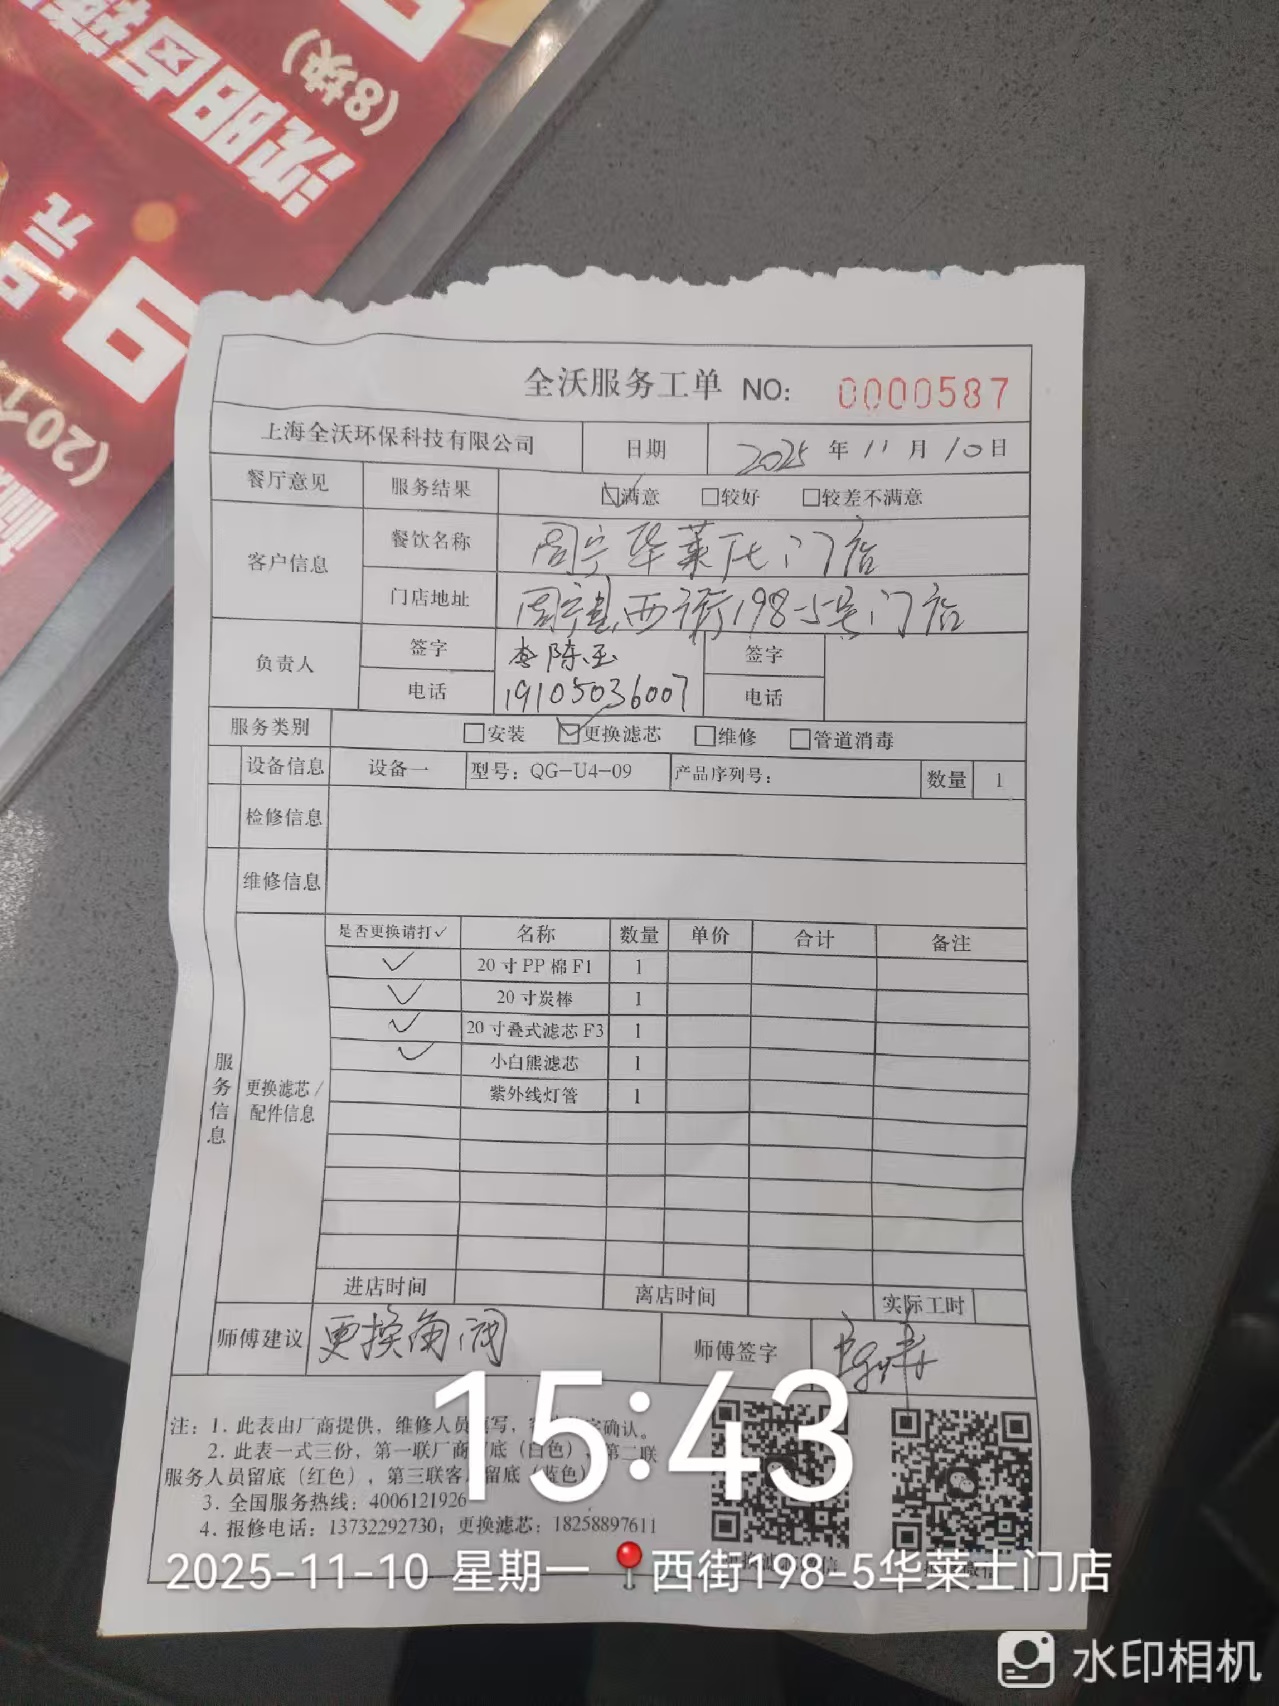 沈阳卤鸡
(8块)
9.9元
(20个
全沃服务工单 NO: 0000587
上海全沃环保科技有限公司 日期 2025年11月10日
餐厅意见 服务结果 ☑满意 □较好 □较差不满意
客户信息 餐饮名称 周宁华莱士门店
门店地址 周宁县西街198-5号门店
负责人 签字 李陈玉 签字
电话 19105036007 电话
服务类别 □安装 ☑更换滤芯 □维修 □管道消毒
设备信息 设备一 型号：QG-U4-09 产品序列号： 数量 1
检修信息
维修信息
服务信息
更换滤芯/配件信息
是否更换请打✓ 名称 数量 单价 合计 备注
✓ 20寸PP棉F1 1
✓ 20寸炭棒 1
✓ 20寸叠式滤芯F3 1
✓ 小白熊滤芯 1
紫外线灯管 1
进店时间 离店时间 实际工时
师傅建议 更换角阀 师傅签字
注：1. 此表由厂商提供，维修人员填写，字确认。
2. 此表一式三份，第一联厂商留底（白色），第二联
服务人员留底（红色），第三联客户留底（蓝色）
3. 全国服务热线：4006121926
4. 报修电话：13732292730；更换滤芯：18258897611
15:43
2025-11-10 星期一 西街198-5华莱士门店
水印相机